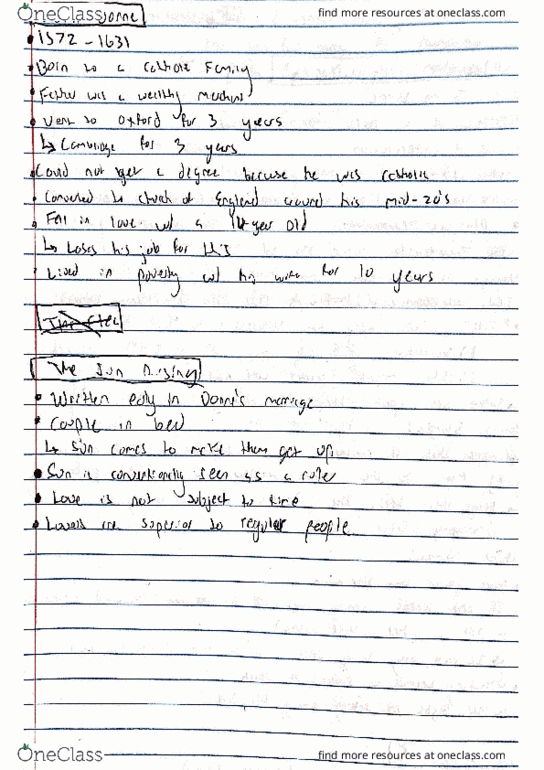 OneClass Donne find more resources at oneclass.com
1572 - 1631
Born to a catholic Family
Father was a wealthy merchant
Went to Oxford for 3 years
↳ Cambridge for 3 years
Could not get a degree because he was catholic
Converted to church of England around his mid-20's
Fell in love w/ a year old
↳ Loses his job for this
Lived in poverty w/ his wife for 10 years
The Sun Rising
Written early in Donne's marriage
Couple in bed
↳ Sun comes to make them get up
Sun is conventionally seen as a ruler
Love is not subject to time
Lovers are superior to regular people
OneClass find more resources at oneclass.com